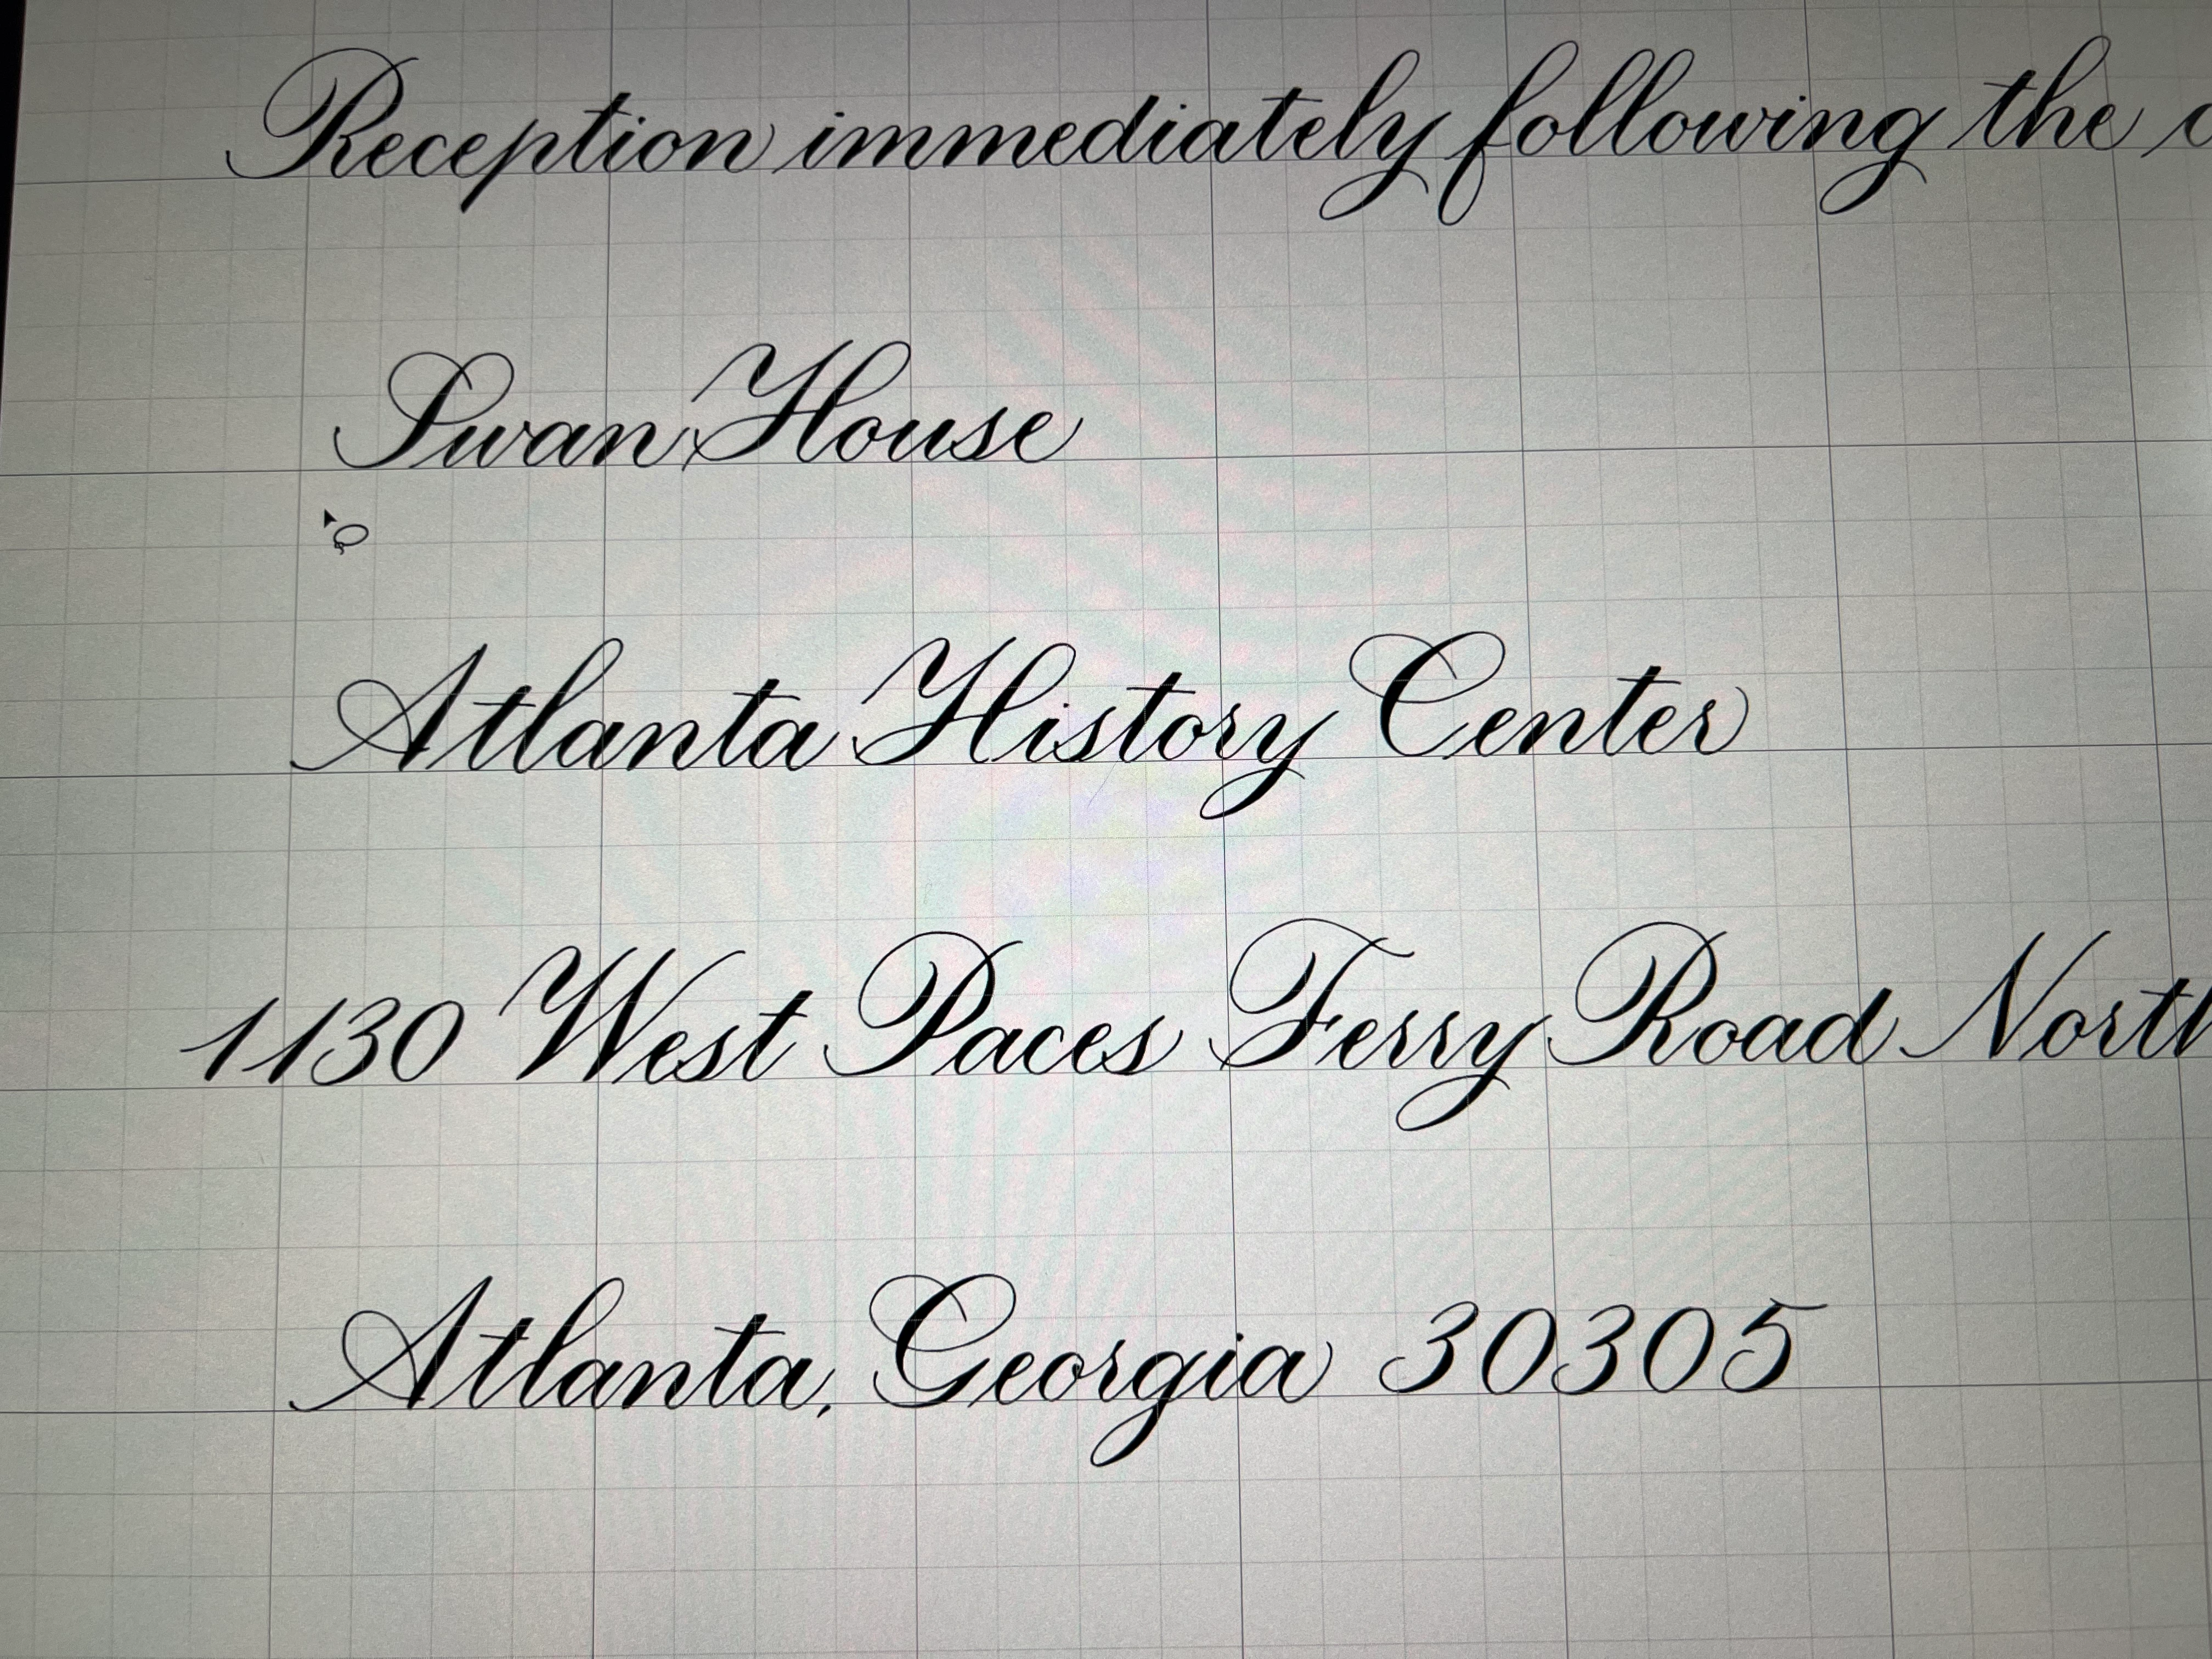 Reception immediately following the
Swan House
Atlanta History Center
1130 West Paces Ferry Road North
Atlanta, Georgia 30305